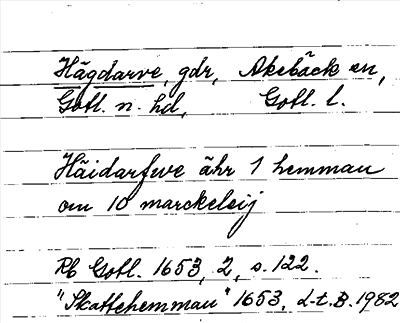 Hägdarve, gdr, Akebäck sn,
Gotl. n. hd, Gotl. l.
Häidarfwe ähr 1 hemman
om 10 marckeleij
Rb Gotl. 1653, 2, s. 122.
"Skattehemman" 1653, d-t. B. 1982